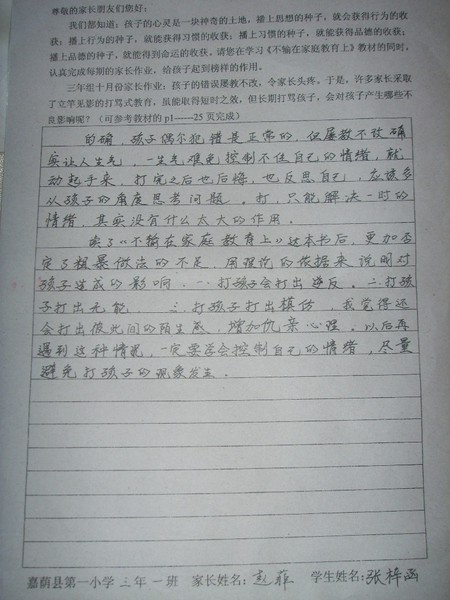 尊敬的家长朋友们您好:
我们都知道:孩子的心灵是一块神奇的土地,播上思想的种子,就会获得行为的收
获;播上行为的种子,就能获得习惯的收获;播上习惯的种子,就能获得品德的收获;
播上品德的种子,就能得到命运的收获。请您在学习《不输在家庭教育上》教材的同时,
认真完成每期的家长作业,给孩子起到榜样的作用。
三年组十月份家长作业:孩子的错误屡教不改,令家长头疼。于是,许多家长采取
了立竿见影的打骂式教育,虽能取得短时之效,但长期打骂孩子,会对孩子产生哪些不
良影响呢?(可参考教材的 p1——25 页完成)
的确,孩子偶尔犯错是正常的,但屡教不改确
实让人生气,一生气难免控制不住自己的情绪,就
动起手来,打完之后也后悔,也反思自己,应该多
从孩子的角度思考问题。打,只能解决一时的
情绪,其实没有什么太大的作用。
读了《不输在家庭教育上》这本书后,更加否
定了粗暴做法的不足,用理论的依据来说明对
孩子造成的影响,一.打孩子会打出违反。二.打孩
子打出无能. 三.打孩子打出模仿. 我觉得还
会打出彼此间的陌生感,增加仇亲心理。以后再
遇到这种情况,一定要学会控制自己的情绪,尽量
避免打孩子的现象发生.
嘉荫县第一小学 三 年 一 班 家长姓名:赵菲 学生姓名:张梓函